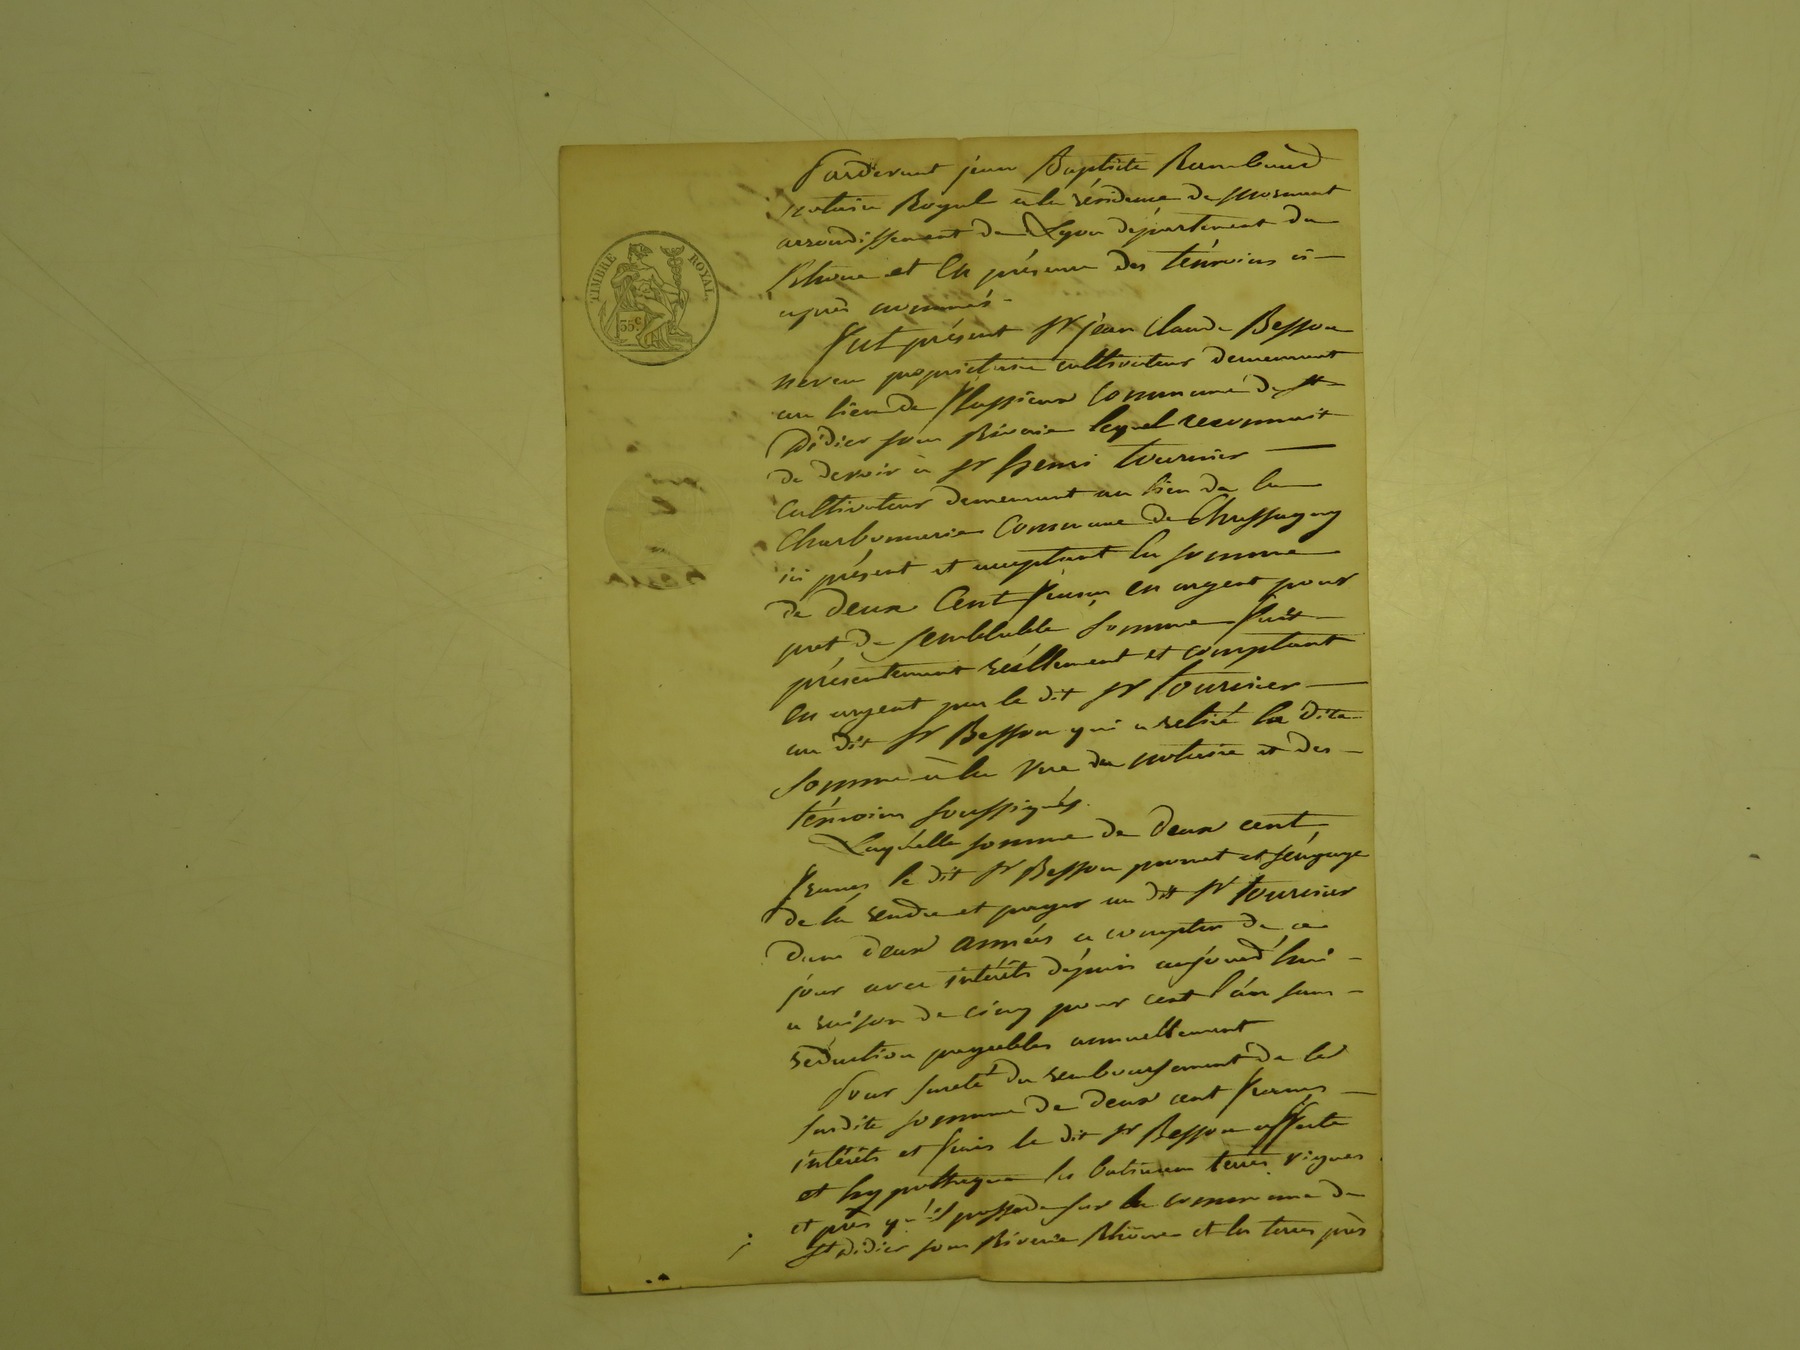 TIMBRE ROYAL
35c
Pardevant jean Baptiste Rambaud
notaire Royal à la résidence de Mornant
arrondissement de Lyon département du
Rhone et En présence des témoins ci-
après nommés-
Fut présent Sr jean Claude Besson
neveu propriétaire cultivateur demeurant
au lieu de Commune de St
Didier sous Riverie lequel reconnait
de devoir à Sr henri tournier
Cultivateur demeurant au lieu de la
Charbonnerie Commune de Chassagny
ici présent et acceptant la somme
de deux Cent francs en argent pour
pret de semblable somme fait
présentement réellement et comptant
en argent par le dit Sr tournier
au dit Sr Besson qui a retiré la dite
somme à la vue du notaire et des-
témoins soussignés.
Laquelle somme de deux cent
francs le dit Sr Besson promet et s'engage
de la rendre et payer au dit Sr tournier
dans deux années a compter de ce
jour avec intérêts dépuis aujourd'hui-
a raison de cinq pour cent l'an sans-
réduction payables annuellement
Pour sureté du remboursement de la
susdite somme de deux cent francs
intérêts et frais le dit Sr Besson affecte
et hypothèque les batimens terres vignes
et près qu'il possède sur la commune de
St Didier sous Riverie Rhône et les terres près